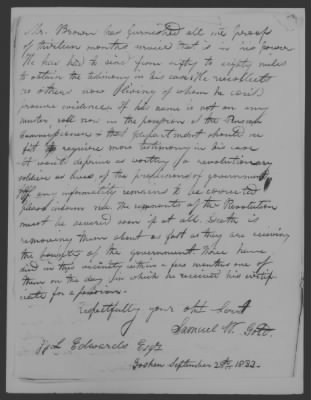 Mr. Brown has furnished all the proofs
of thirteen months service that is in his power
He has had to send from eighty to ninety miles
to obtain the testimony in his case. He recollects
no others now living of whom he could
procure evidence. If his name is not on any
muster roll now in the possession of the Pension
Commissioner & that department should see
fit to require more testimony in his case
it would deprive as worthy a revolutionary
soldier as lives of the provisions of government
If any informality remains to be corrected
please inform me. The remnants of the Revolution
must be secured soon if at all. Death is
removing them about as fast as they are receiving
the benefits of the government. Four have
died in this vicinity within a few months one of
them on the day in which he received his certifi
cate for a pension.
Respectfully your obt Servt
Samuel W. Gott.
J L Edwards Esqr
Goshen September 28th, 1832.